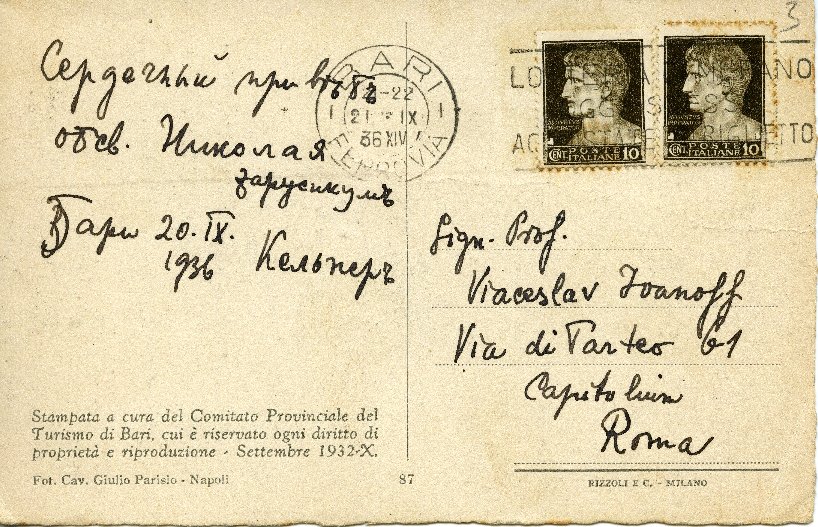 Сердечный привѣтъ
от св. Николая
Бари 20. IX.
1936
Кельнеръ
Stampata a cura del Comitato Provinciale del
Turismo di Bari, cui è riservato ogni diritto di
proprietà e riproduzione - Settembre 1932-X.
Fot. Cav. Giulio Parisio - Napoli
87
BARI
-22
21 IX
36 XIV
FERROVIA
3
MERANO
BIGLIETTO
CENT. POSTE ITALIANE 10
CENT. POSTE ITALIANE 10
Sign. Prof.
Viaceslav Ivanoff
Via di Tarteo 61
Capitolium
Roma
RIZZOLI E C. - MILANO